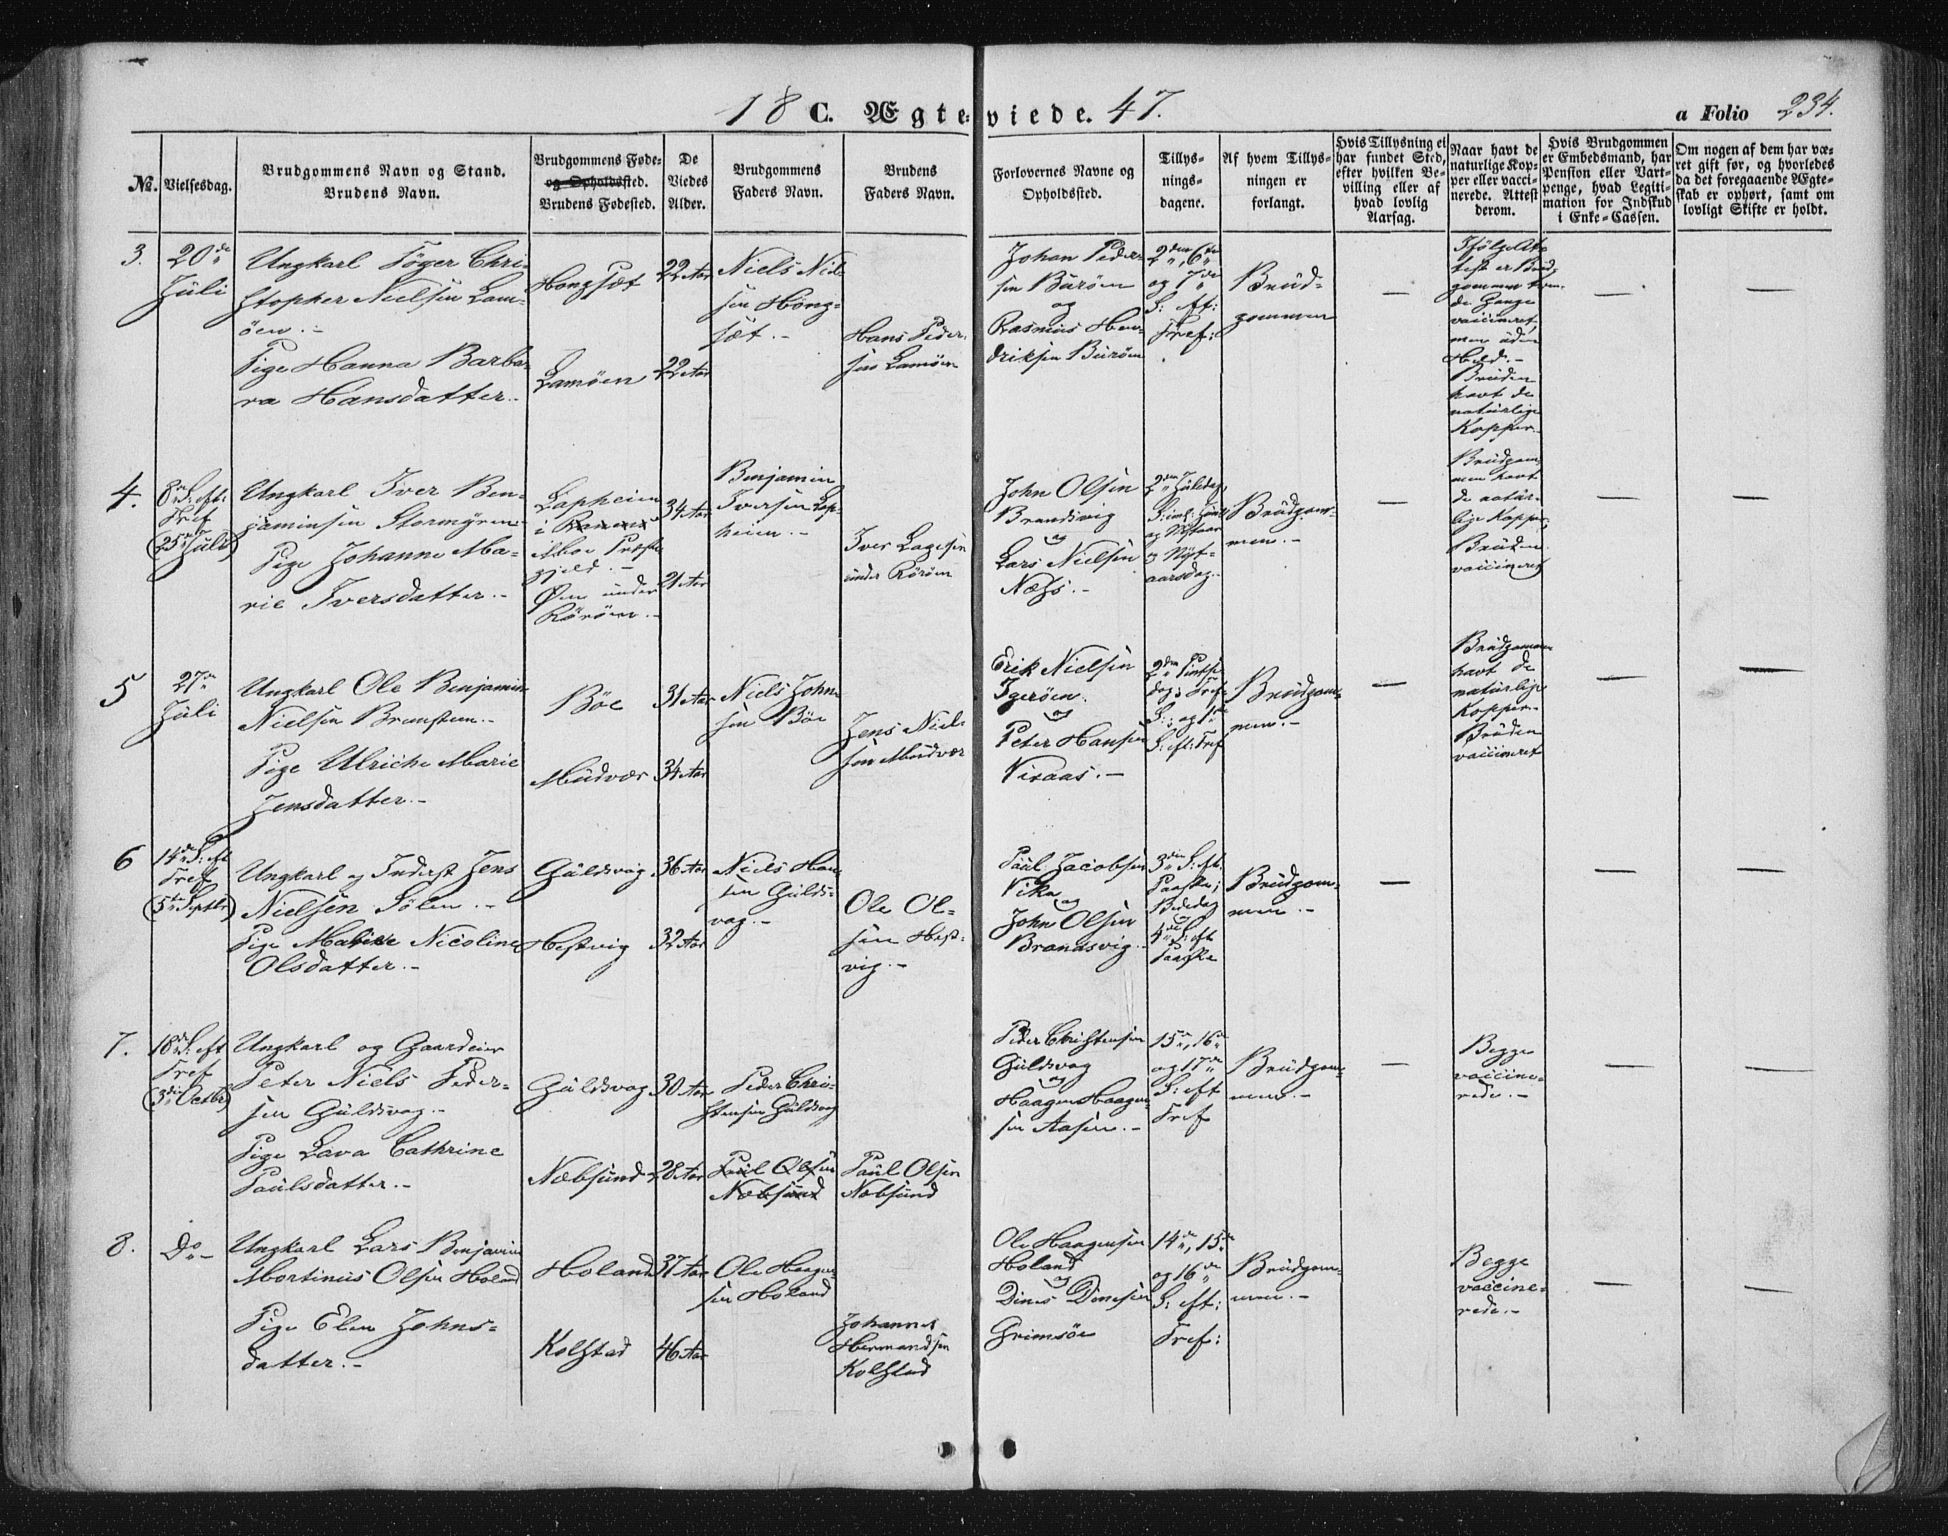 18 C. Ægteviede. 47.
a Folio 234.
No.
Vielsesdag.
Brudgommens Navn og Stand.
Brudens Navn.
Brudgommens Føde-
og Opholdssted.
Brudens Fødested.
De
Viedes
Alder.
Brudgommens
Faders Navn.
Brudens
Faders Navn.
Forlovernes Navne og
Opholdssted.
Tillys-
nings-
dagene.
Af hvem Tillys-
ningen er
forlangt.
Hvis Tillysning ei
har fundet Sted,
efter hvilken Be-
villing eller af
hvad lovlig
Aarsag.
Naar havt de
naturlige Kop-
per eller vacci-
nerede. Attest
derom.
Hvis Brudgommen
er Embedsmand, har
Pension eller Vart-
penge, hvad Legiti-
mation for Indskud
i Enke-Cassen.
Om nogen af dem har væ-
ret gift før, og hvorledes
da det foregaaende Ægte-
skab er ophørt, samt om
lovligt Skifte er holdt.
3.
20de
Juli
Ungkarl Töger Chri-
stopher Nielsen Lam-
öen.-
Pige Hanna Barba-
ra Hansdatter.-
Hongsæt
Lamöen
22 Aar
22 Aar
Niels Niel
sen Höng-
sæt.-
Hans Peder
sen Lamöen
Johan Peder
sen Buröen
og
Rasmus Hen-
driksen Buröen
2den, 6te
og 7de
S: eft:
Tref:
Brud-
gommen
—
Ifölge At-
test er Brud
gommen
de Gange
vaccineret,
men uden
Held.-
Bruden
havt de
naturlige
Kopper.
—
—
4.
8de S: eft:
Tref
(25de Juli)
Ungkarl Iver Ben-
jaminsen Stormyren
Pige Johanne Ma-
rie Iversdatter.-
Lapheim
i Ranen
Præste
gjeld.-
Öen under
Röröen.-
34 Aar
21 Aar
Benjamin
Iversen Lap-
heim.-
Iver Lagesen
under Röröen
John Olsen
Brandsvig
og
Lars Nielsen
Næss.-
2den Juledag,
S: iml: Juul
og Nytaar
og Nyt-
aarsdag.
Brudgom-
men.-
—
Brudgom
men havt
de natur-
lige Kopper,
Bruden
vaccineret
—
—
5
27de
Juli
Ungkarl Ole Benjamin
Nielsen Bransteen.-
Pige Ulriche Marie
Jensdatter.-
Böe
Mudvær
31 Aar
34 Aar
Niels John
sen Böe
Jens Niel-
sen Mudvær
Erik Nielsen
Igeröen
og
Peter Hansen
Viraas.-
2den Pintse
dag, Tref-
S:, og 1ste
S: eft: Tref
Brudgom-
men.-
—
Brudgommen
havt de
naturlige
Kopper.
Bruden
vaccineret
—
—
6
14de S: eft
Tref
(5te Septbr)
Ungkarl og Inderst Jens
Nielsen Sölen.-
Pige Nicoline
Olsdatter.-
Guldsvog
Hestvig
36 Aar
32 Aar
Niels Han
sen Gulds-
vog.-
Ole Ol-
sen Hest-
vig.-
Paul Jacobsen
Vika
og
John Olsen
Brandsvig.
3die S: eft:
Paaske,
Bededag
og
4de S: eft
Paaske
Brudgom-
men.-
—
—
—
7.
18de S: eft
Tref
(3die Octbr)
Ungkarl og Gaardeier
Peter Niels Peder-
sen Guldsvog.-
Pige Lava Cathrine
Paulsdatter.-
Guldsvog
Næbsund
30 Aar
28 Aar
Peder Chri-
stensen Guldsvog
Paul Olsen
Næbsund
Paul Olsen
Næbsund
Peder Christensen
Guldsvog
og
Haagen Haagen-
sen Aasen.-
15de, 16de
og 17de
S: eft
Tref
Brudgom-
men.-
—
Begge
vaccine-
rede.-
—
—
8.
Do-
Ungkarl Lars Benjamin
Mortinus Olsen Holand
Pige Elen Johns-
datter.-
Holand
Kolstad
37 Aar
46 Aar
Ole Haagen-
sen Holand
Johannes
Hermandsen
Kolstad
Ole Haagensen
Holand
og
Dines Dinesen
Grimsöe
14de, 15de
og 16de
S: eft:
Tref:
Brudgom-
men.-
Begge
vaccine-
rede.-
—
—